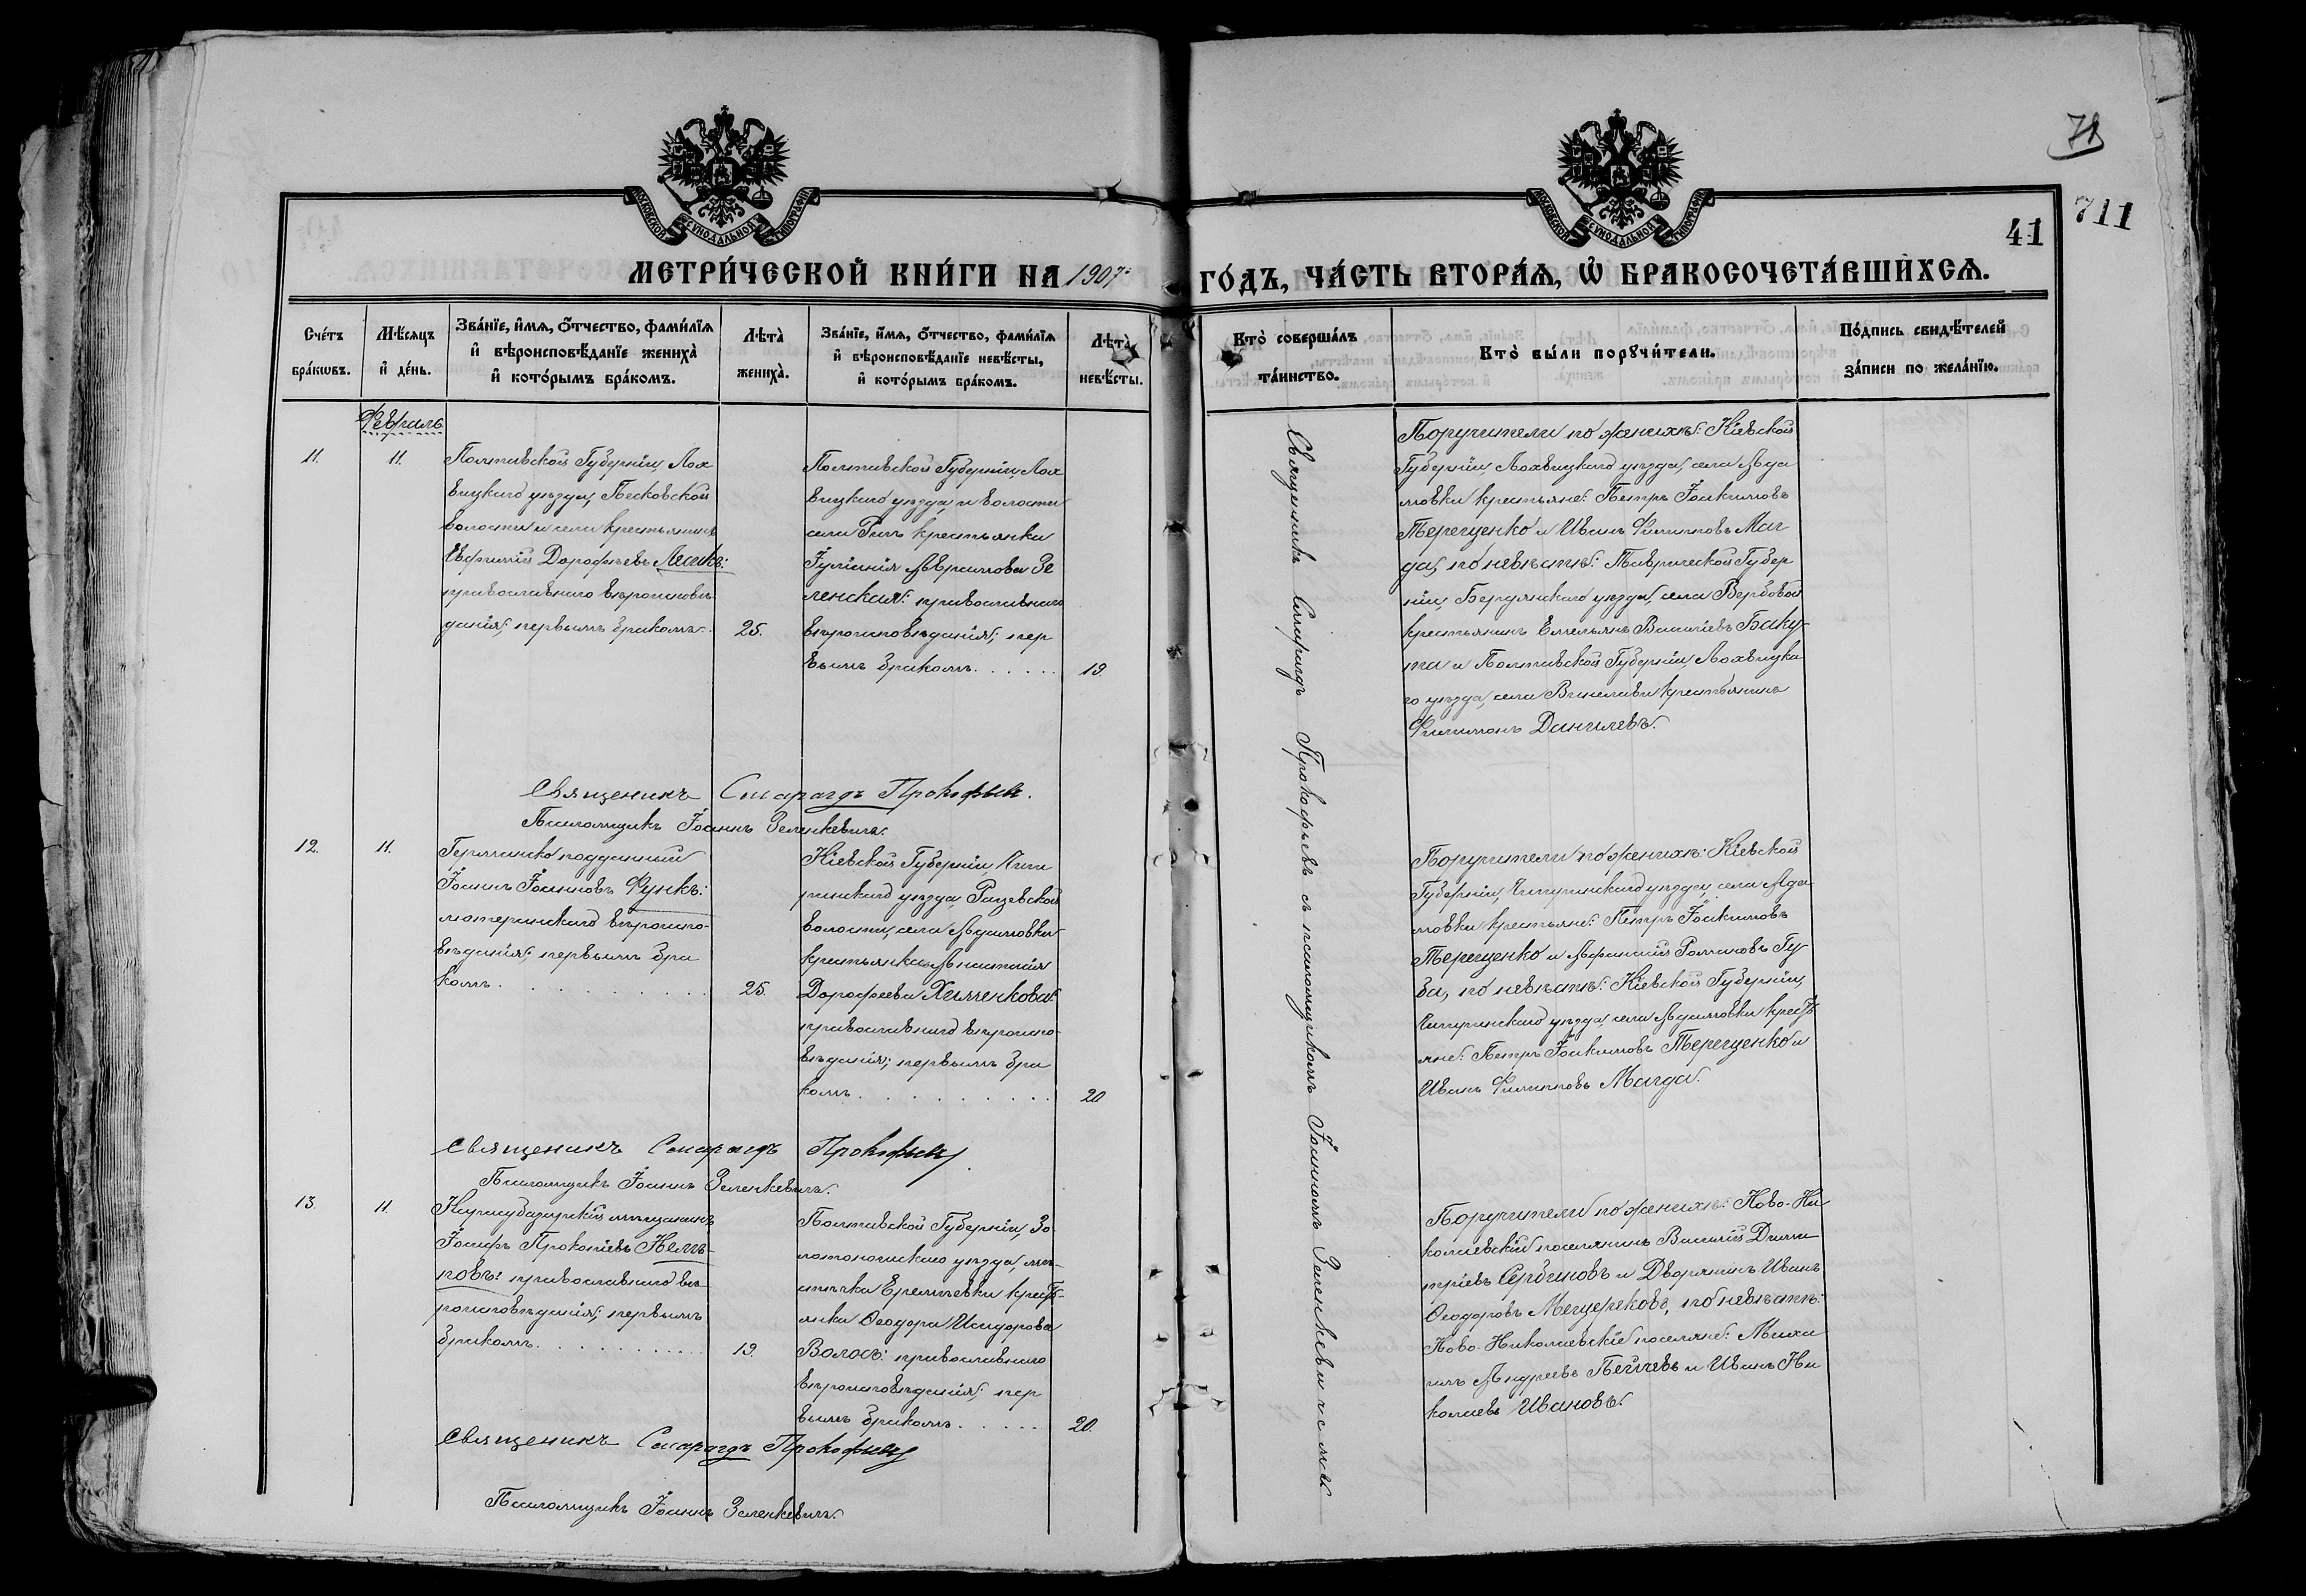 71
711
41
МОСКОВСКОЙ СѴНОДАЛЬНОЙ ТИПОГРАФІИ
МОСКОВСКОЙ СѴНОДАЛЬНОЙ ТИПОГРАФІИ
МЕТРИ́ЧЕСКОЙ КНИ́ГИ НА 1907: ГО́ДЪ, ЧА́СТЬ ВТОРА́Я, Ѡ҆ БРАКОСОЧЕТА́ВШИХСЯ.
Сче́тъ бра́кѡвъ.
Мѣ́сяцъ и҆ де́нь.
Зва́нїе, и҆́мя, ѻ҆́тчество, фами́лїя
и҆ вѣроисповѣ́данїе жениха̀
и҆ кото́рымъ бра́комъ.
Лѣта̀ жениха̀.
Зва́нїе, и҆́мя, ѻ҆́тчество, фами́лїя
и҆ вѣроисповѣ́данїе невѣ́сты,
и҆ кото́рымъ бра́комъ.
Лѣта̀ невѣ́сты.
Кто̀ соверша́лъ
та́инство.
Кто̀ бы́ли порꙋчи́тели.
По́дпись свидѣ́телей
за́писи по жела́нїю.
Февраль
11.
11.
Полтавской Губерніи, Лох
вицкаго уѣзда, Песковской
волости и села крестьянинъ
Евфимій Дорофѣевъ Лесикъ:
православнаго вѣроисповѣ
данія; первымъ бракомъ.
25.
Полтавской Губерніи, Лох
вицкаго уѣзда, и волости
села Гилъ крестьянка
Іуліанія Авраамова Зе
ленская: православнаго
вѣроисповѣданія; пер
вымъ бракомъ. . . . . .
19.
Поручители по женихѣ: Кіевской
Губерніи, Лохвицкаго уѣзда, села Ада
мовки крестьяне: Петръ Іоакимовъ
Терещенко и Иванъ Филипповъ Маг
да, по невѣстѣ: Таврической Губер
ніи, Бердянскаго уѣзда, села Вербовой
крестьянинъ Емельянъ Василіевъ Баку
та и Полтавской Губерніи, Лохвицка
го уѣзда, села крестьянинъ
Филимонъ Данилевъ.
Священникъ Смарагдъ Прокофьевъ съ псаломщикомъ Іоанномъ Зеленкевичемъ
Священникъ Смарагдъ Прокофьев.
Псаломщикъ Іоаннъ Зеленкевичъ.
12.
11.
Германско подданный
Іоаннъ Іоанновъ Функъ:
лютеранскаго вѣроиспо-
вѣданія; первымъ бра
комъ. . . . . . . .
25.
Кіевской Губерніи, Чиги
ринскаго уѣзда, Рацевской
волости, села Адамовки
крестьянка Анастасія
Дорофеева Хименкова:
православнаго вѣроиспо-
вѣданія; первымъ бра
комъ. . . . . . . . .
20
Поручители по женихѣ: Кіевской
Губерніи, Чигиринскаго уѣзда, села Ада-
мовки крестьяне: Петръ Іоакимовъ
Терещенко и Афанасій Романовъ Гу
ба, по невѣстѣ: Кіевской Губерніи,
Чигиринскаго уѣзда, села Адамовки кресть
яне: Петръ Іоакимовъ Терещенко и
Иванъ Филипповъ Магда.
Священникъ Смарагдъ Прокофьев
Псаломщикъ Іоаннъ Зеленкевичъ.
13.
11.
Карасубазарскій мѣщанинъ
Іосифъ Прокопіевъ
православнаго вѣ
роисповѣданія; первымъ
бракомъ. . . . . . . . . .
19.
Полтавской Губерніи, Зо
лотоношскаго уѣзда, мѣ-
стечка Еремѣевки кресть-
янка Ѳеодора Исидорова
Волосъ: православнаго
вѣроисповѣданія; пер
вымъ бракомъ. . . . . .
20.
Поручители по женихѣ: Ново-Ни
колаевскій поселянинъ Василій Дими
тріевъ Сербиновъ и Дворянинъ Иванъ
Ѳеодоровъ Мещеряковъ, по невѣстѣ:
Ново-Николаевскіе поселяне: Миха
илъ Андреевъ Пейчевъ и Иванъ Ни
колаевъ Ивановъ.
Священникъ Смарагдъ Прокофьев
Псаломщикъ Іоаннъ Зеленкевичъ.